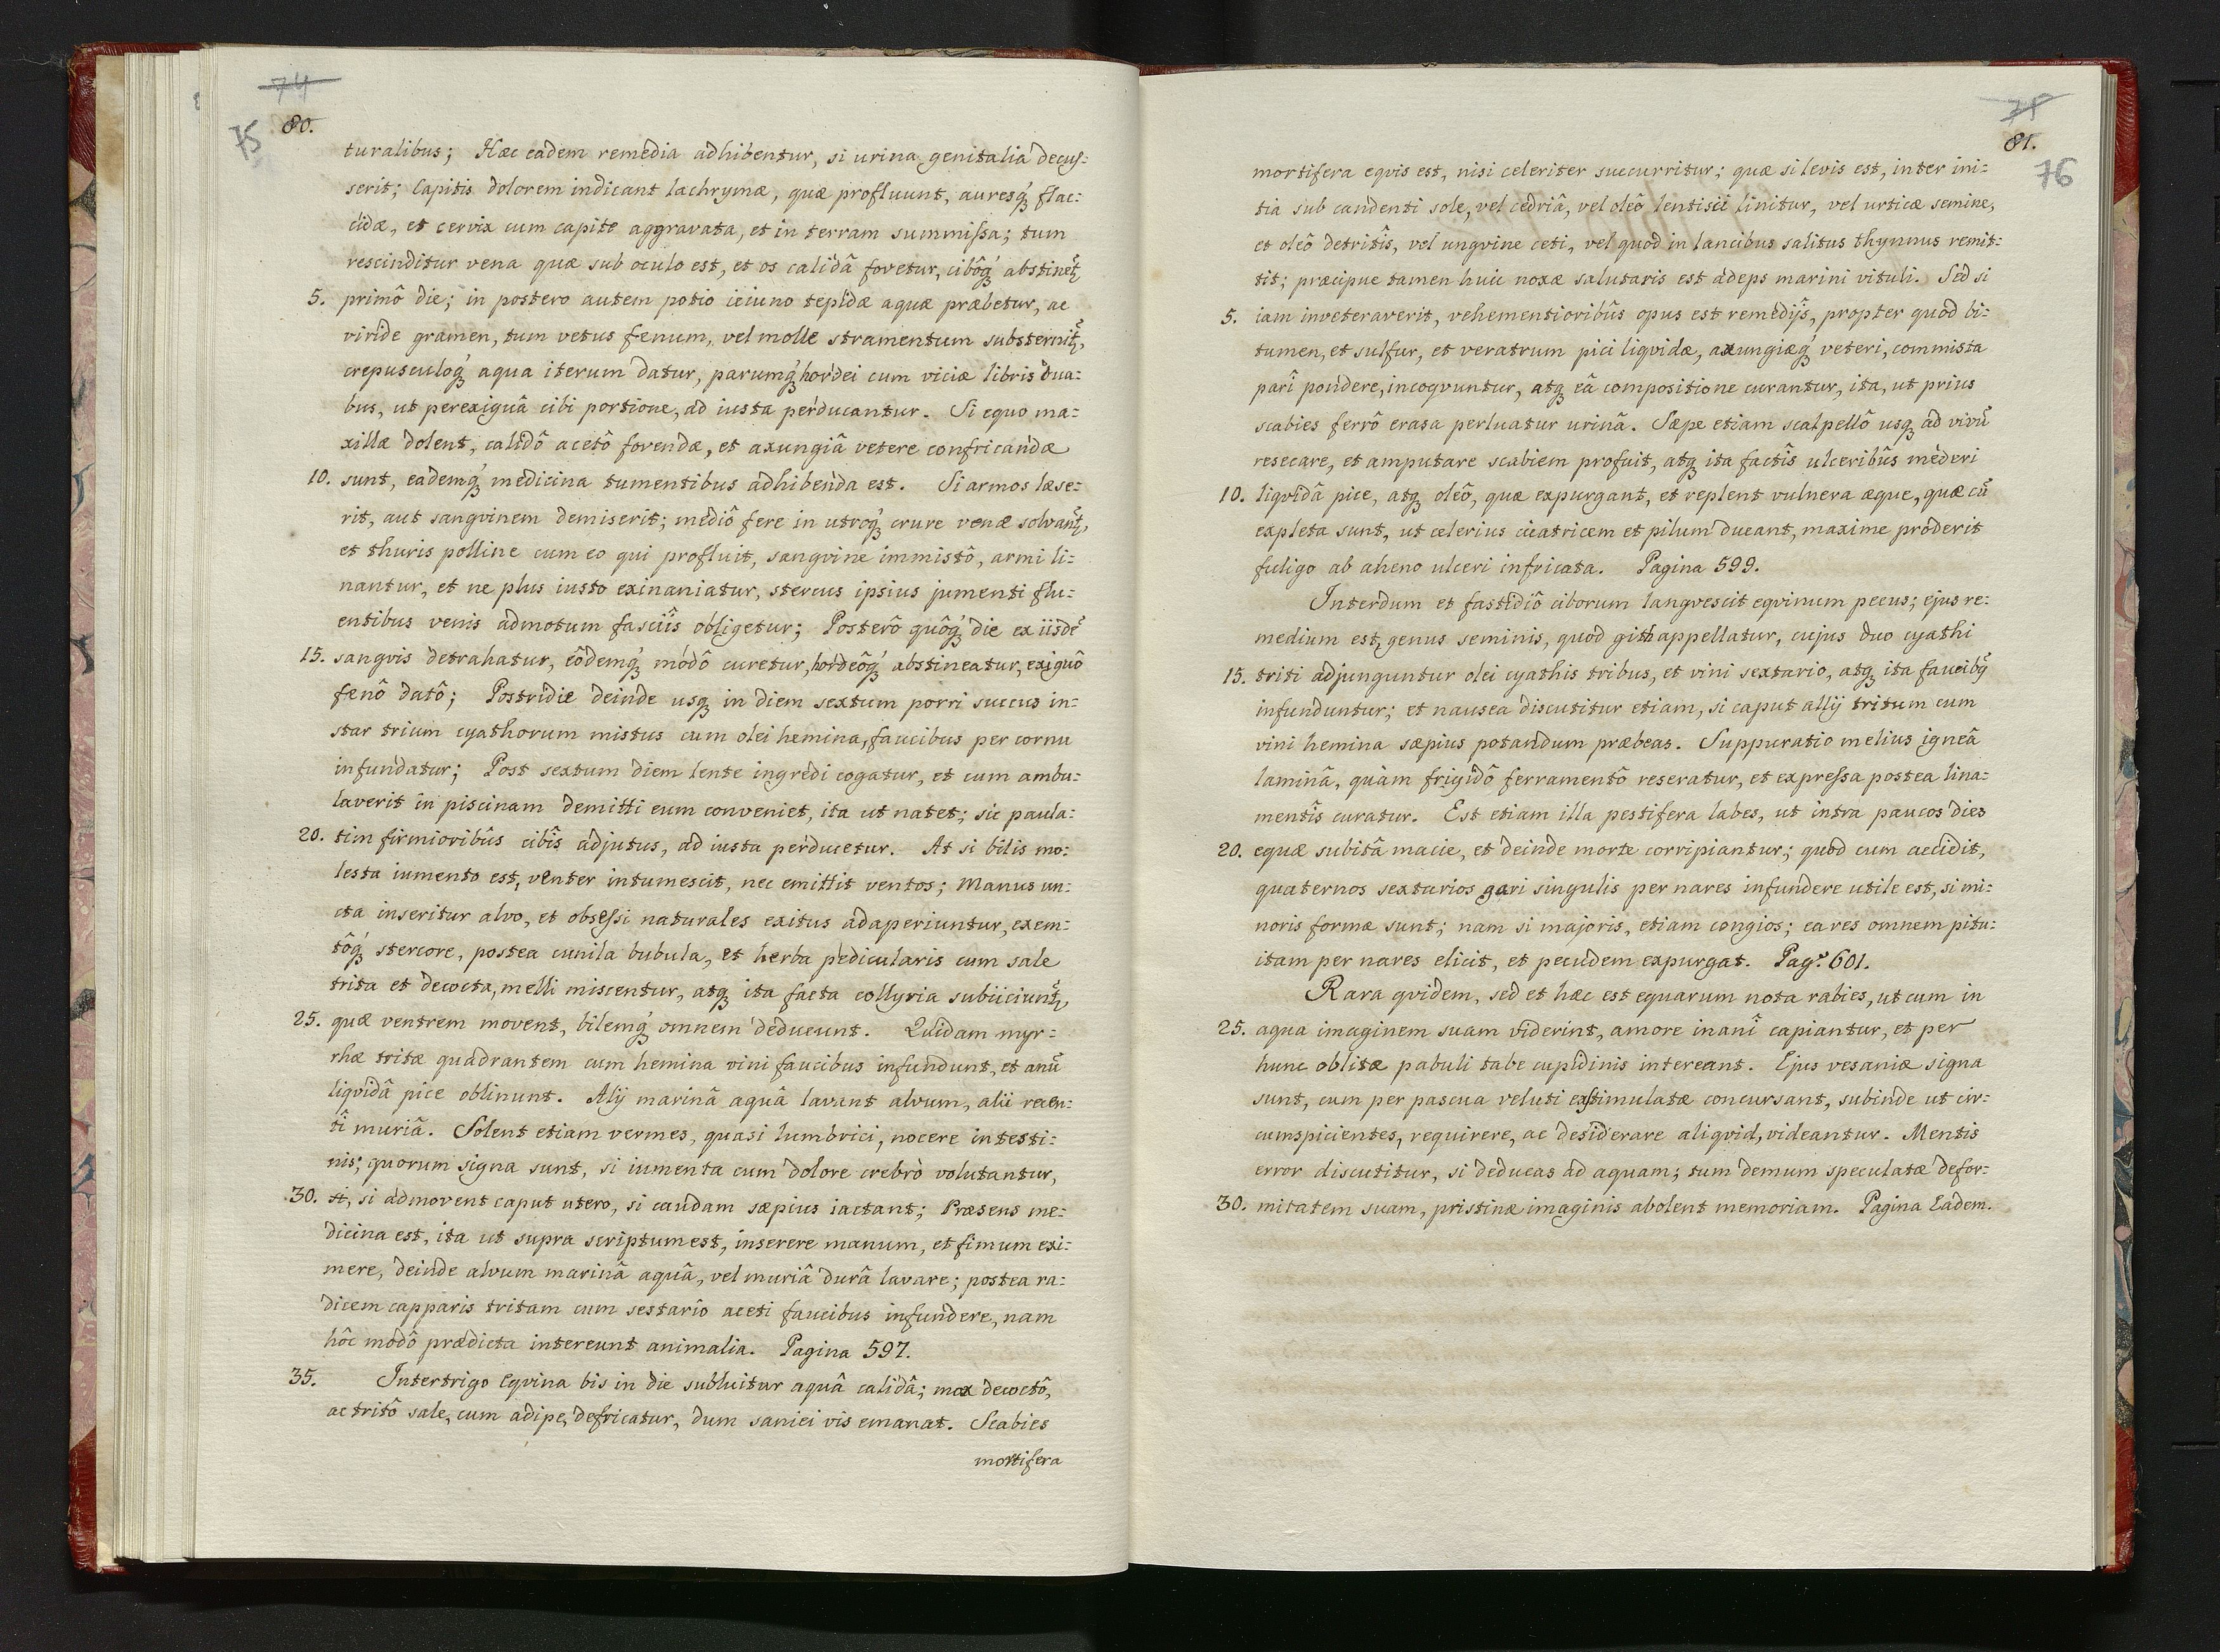 74
80.
75
turalibus; Hæc eadem remedia adhibentur, si urina genitalia decus=
serit; Capitis dolorem indicant lachrymæ, quæ profluunt, auresq́ꝫ flac=
cidæ, et cervix cum capite aggravata, et in terram summiſsa; tum
rescinditur vena quæ sub oculo est, et os calidâ fovetur, cibôq́ꝫ abstinet̃
5. primô die; in postero autem potio ieiuno tepidæ aquæ præbetur, ac
viride gramen, tum vetus fenum, vel molle stramentum substernit̃,
crepusculoq́ꝫ aqua iterum datur, parumq́ꝫ hordei cum viciæ libris dua=
bus, ut perexiguâ cibi portione, ad iusta perducantur. Si equo ma=
xillæ dolent, calidô acetô fovendæ, et axungiâ vetere confricandæ
10. sunt, eademq́ꝫ medicina tumentibus adhibenda est. Si armos læse=
rit, aut sangvinem demiserit; mediô fere in utroq́ꝫ crure venæ solvant̃,
et thuris polline cum eo qui profluit, sangvine immistô, armi li=
nantur, et ne plus iusto exinaniatur, stercus ipsius jumenti flu=
entibus venis admotum fasciîs obligetur; Posterô quôq́ꝫ die ex iisdẽ
15. sangvis detrahatur, eôdemq́ꝫ módô curetur, hordeôq́ꝫ abstineatur, exiguô
fænô datô; Postridie deinde usqꝫ in diem sextum porri succus in=
star trium cyathorum mistus cum olei hemina, faucibus per cornu
infundatur; Post sextum diem lente ingredi cogatur, et cum ambu=
laverit in piscinam demitti eum conveniet, ita ut natet; sic paula=
20. tim firmioribûs cibîs adjutus, ad iusta perducetur. At si bilis mo=
lesta iumento est, venter intumescit, nec emittit ventos; Manus un=
cta inseritur alvo, et obseſsi naturales exitus adaperiuntur, exem=
tôq́ꝫ stercore, postea cunila bubula, et herba pedicularis cum sale
trita et decocta, melli miscentur, atqꝫ ita facta collyria subiiciunt̃,
25. quæ ventrem movent, bilemq́ꝫ omnem deducunt. Quidam myr=
rhæ tritæ quadrantem cum hemina vini faucibus infundunt, et anũ
liqvidâ pice oblinunt. Alij marinâ aquâ lavant alvum, alii recen=
tî muriâ. Solent etiam vermes, quasi lumbrici, nocere intesti=
nis; quorum signa sunt, si iumenta cum dolore crebrò volutantur,
30. si, si admovent caput utero, si caudam sæpius iactant; Præsens me=
dicina est, ita ut supra scriptum est, inserere manum, et fimum exi=
mere, deinde alvum marinâ aquâ, vel muriâ durâ lavare; postea ra=
dicem capparis tritam cum sestario aceti faucibus infundere, nam
hôc modô prædicta intereunt animalia. Pagina 597.
35. Intertrigo Eqvina bis in die subluitur aquâ calidâ; mox decoctô,
ac tritô sale, cum adipe, defricatur, dum saniei vis emanat. Scabies
mortifera
75
81.
76
mortifera eqvis est, nisi celeriter succurritur; quæ si levis est, inter ini=
tia sub candenti sole, vel cedriâ, vel oleô lentisci linitur, vel urticæ semine,
et oleô detritîs, vel ungvine ceti, vel quod in lancibus salitus thynnus remit=
tit; præcipue tamen huic noxæ salutaris est adeps marini vituli. Sed si
5. iam inveteraverit, vehementioribûs opus est remedijs, propter quod bi=
tumen, et sulfur, et veratrum pici liqvidæ, axungiæq́ꝫ veteri, commista
parî pondere, incoqvuntur, atqꝫ eâ compositione curantur, ita, ut prius
scabies ferrô erasa perluatur urinâ. Sæpe etiam scalpellô usqꝫ ad vivũ
resecare, et amputare scabiem profuit, atqꝫ ita factîs ulceribûs mederi
10. liqvidâ pice, atqꝫ oleô, quæ expurgant, et replent vulnera æque, quæ cũ
expleta sunt, ut celerius cicatricem et pilum ducant, maxime proderit
fuligo ab aheno ulceri infricata. Pagina 599.
Interdum et fastidiô ciborum langvescit eqvinum pecus; ejus re=
medium est, genus seminis, quod gith appellatur, cujus duo cyathi
15. triti adjunguntur olei cyathis tribus, et vini sextario, atqꝫ ita faucibꝫ
infunduntur; et nausea discutitur etiam, si caput allij tritum cum
vini hemina sæpius potandum præbeas. Suppuratio melius igneâ
laminâ, quàm frigidô ferramentô reseratur, et expreſsa postea lina=
mentîs curatur. Est etiam illa pestifera labes, ut intra paucos dies
20. equæ subitâ macie, et deinde morte corripiantur; quod cum accidit,
quaternos sextarios gari singulis per nares infundere utile est, si mi=
noris formæ sunt; nam si majoris, etiam congios; ea res omnem pitu=
itam per nares elicit, et pecudem expurgat. Pagᵃ 601.
Rara qvidem, sed et hæc est equarum nota rabies, ut cum in
25. aqua imaginem suam viderint, amore inanî capiantur, et per
hunc oblitæ pabuli tabe cupidinis intereant. Ejus vesaniæ signa
sunt, cum per pascua veluti exstimulatæ concursant, subinde ut cir=
cumspicientes, requirere, ac desiderare aliqvid, videantur. Mentis
error discutitur, si deducas ad aquam; tum demum speculatæ defor=
30. mitatem suam, pristinæ imaginis abolent memoriam. Pagina Eadem.